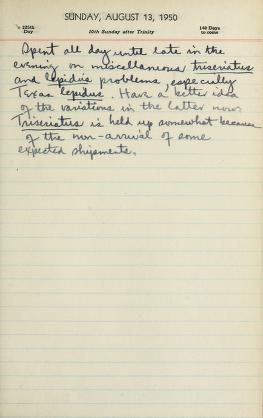 SUNDAY, AUGUST 13, 1950
225th Day
10th Sunday after Trinity
140 Days to come
Spent all day until late in the
evening on miscellaneous triseriatus
and lepidus problems, especially
Texas lepidus. Have a better idea
of the variations in the latter now.
Triseriatus is held up somewhat because
of the non-arrival of some
expected shipments.